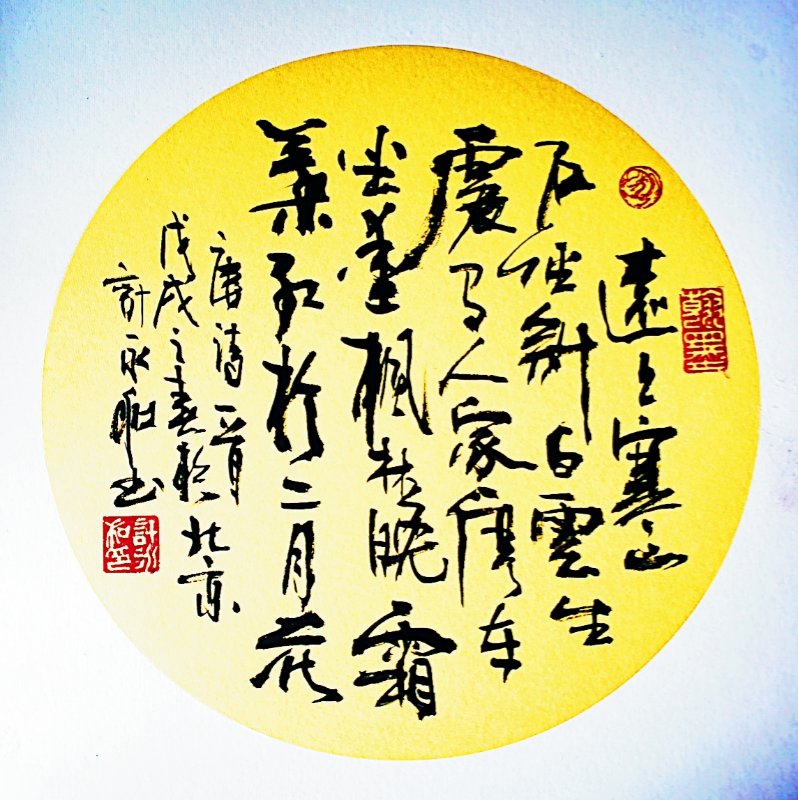 遠上寒山
石徑斜白雲生
處有人家停车
坐愛楓林晚霜
葉紅於二月花
唐詩一首
戊戌之春於北京
計永和书
計永和印